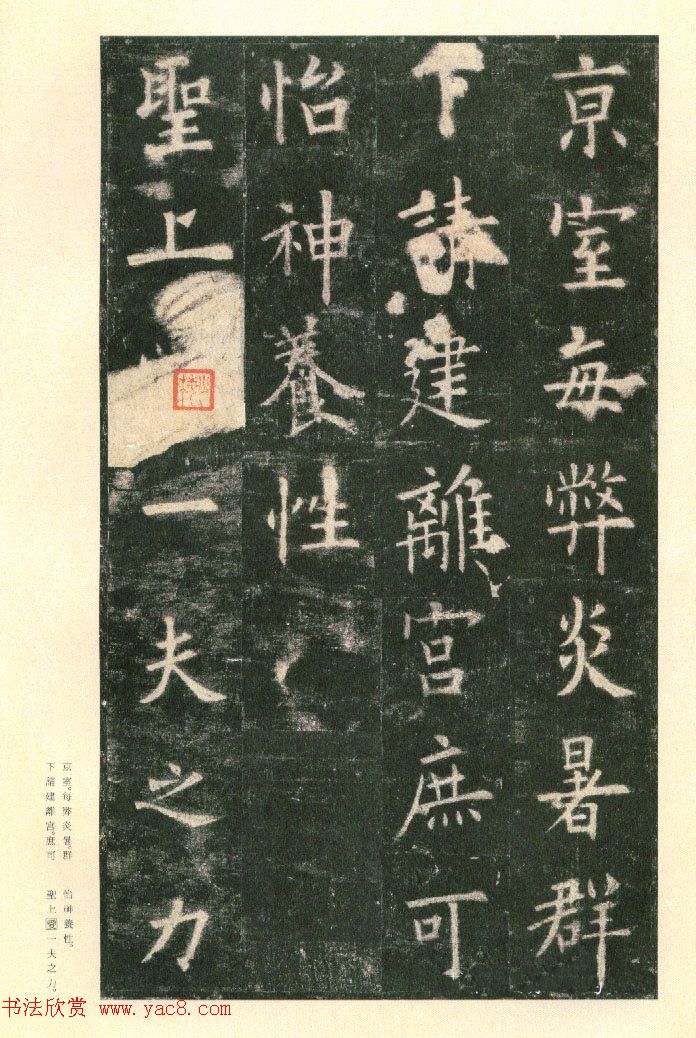 京室每弊炎暑群
下請建離宮庶可
怡神養性
聖上一夫之力
京室。每弊炎暑。群
下請建離宮。庶可
怡神養性。
聖上愛一夫之力。
书法欣赏 www.yac8.com